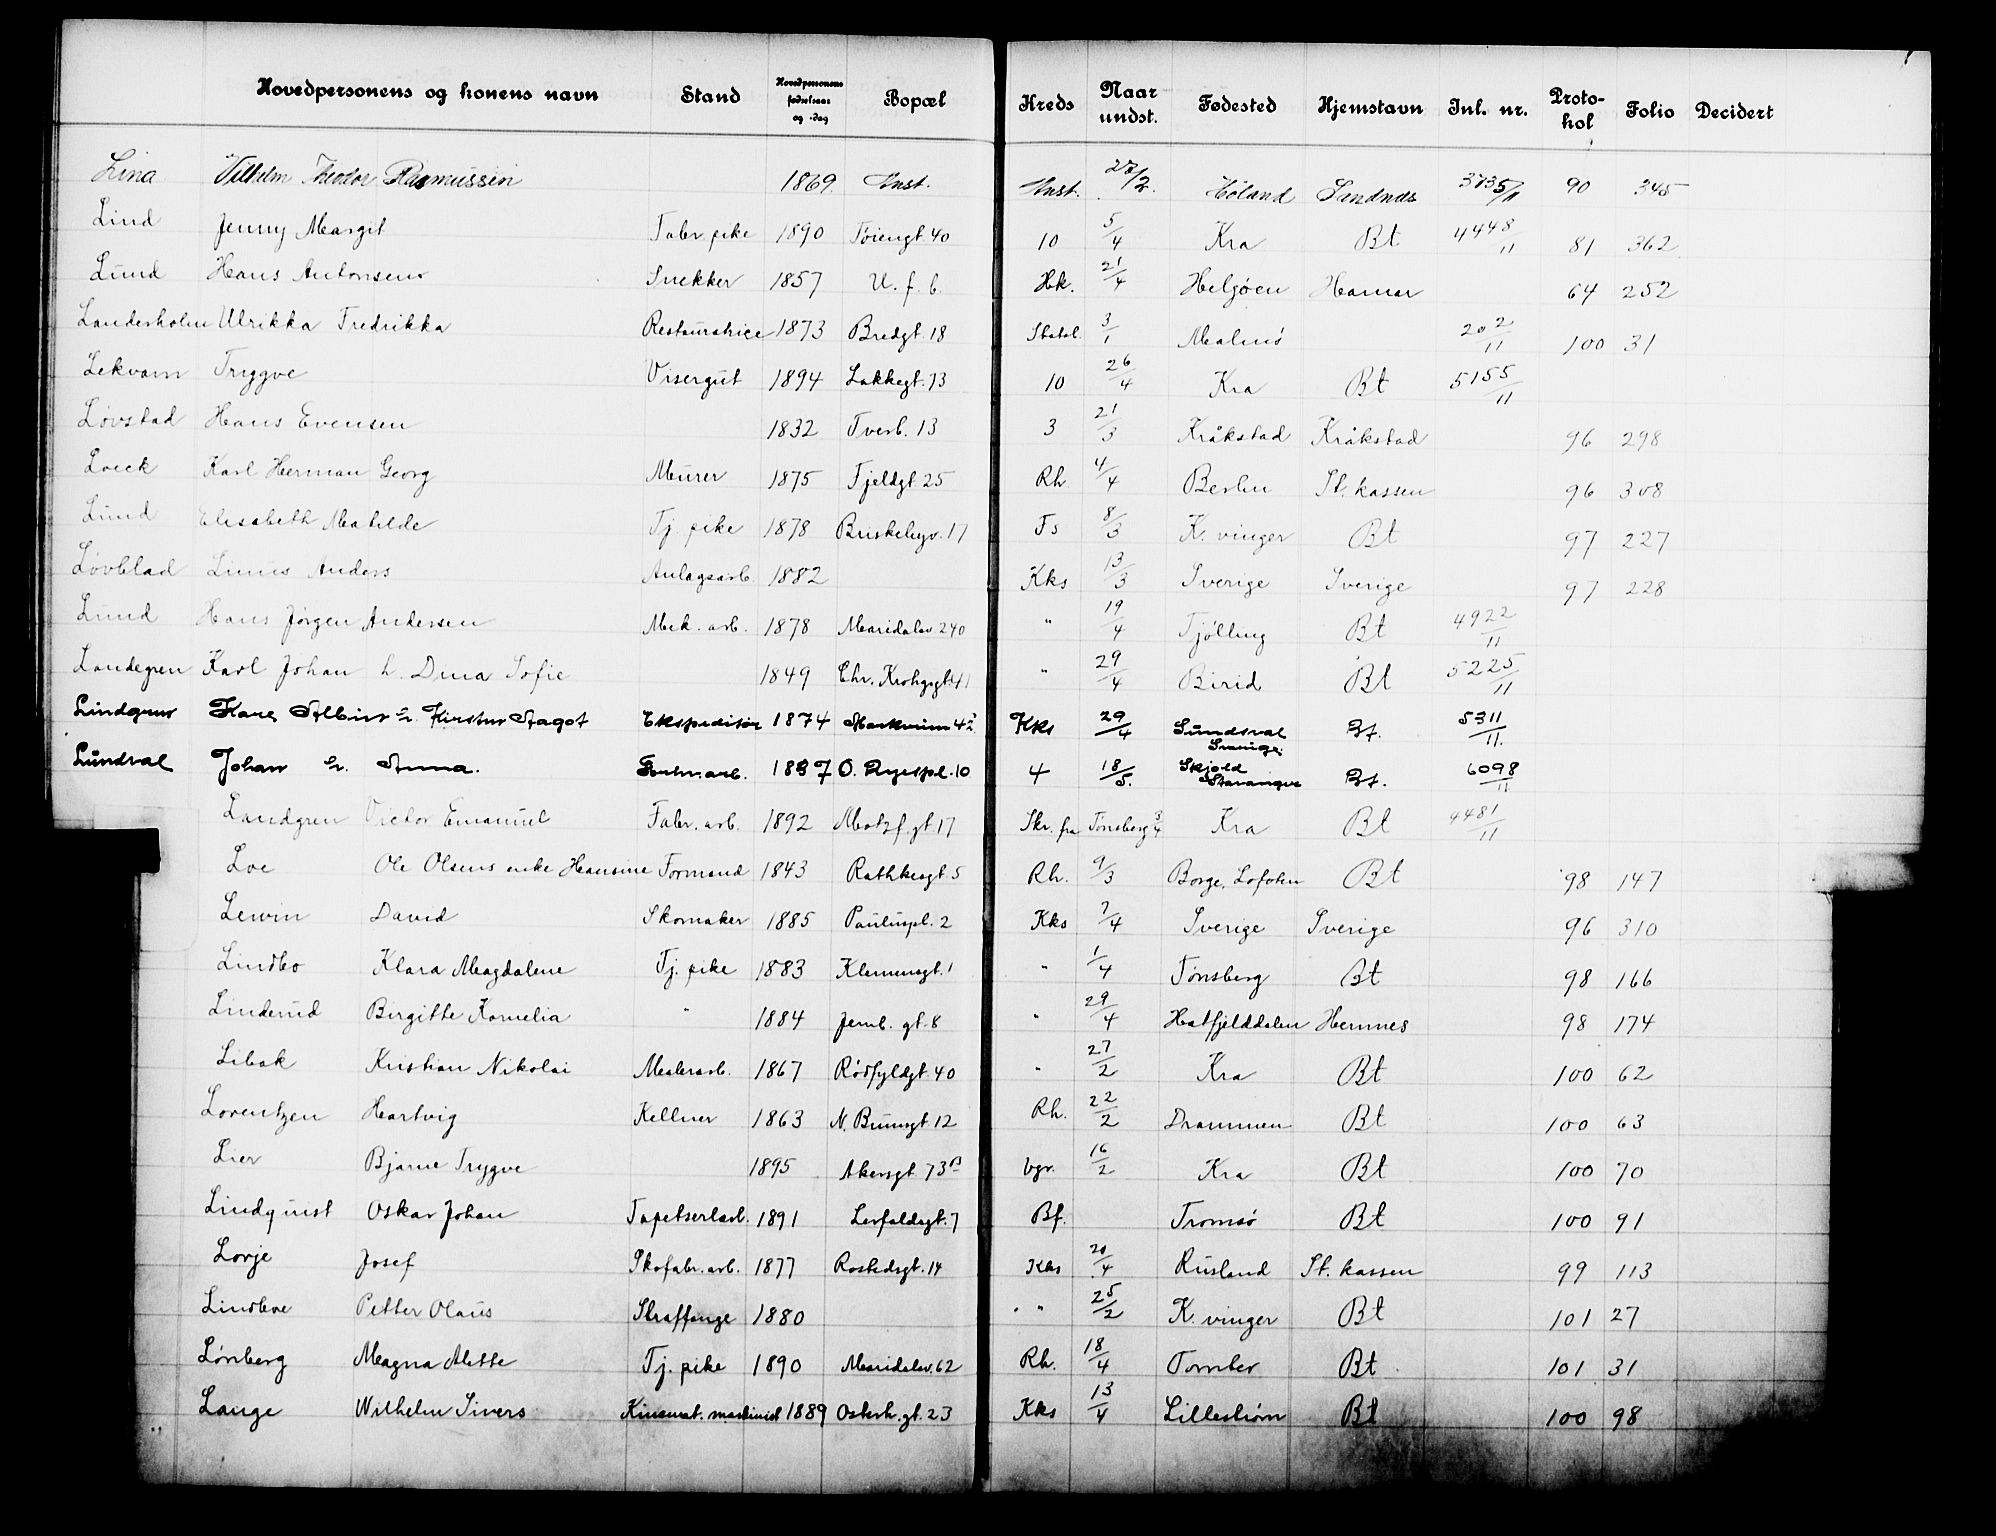 Hovedpersonens og konens navn Stand Hovedpersonens fødselsaar og -dag Bopæl Kreds Naar undst. Fødested Hjemstavn Inl. nr. Protokol Folio Decidert
Lina Vilhelm Theodor Rasmussen 1869 Anst. Anst. 2/2 Høland Sandnes 3735/11 90 345
Lind Jenny Margit Fabr. pike 1890 Tøiengt. 40 10 5/4 Kra Bt 4448/11 81 362
Lund Hans Antonsens Snekker 1857 U. f. b. Hk. 21/4 Helgøen Hamar 64 252
Landesholm Ulrikka Fredrikka Restauratrice 1873 Bredgt. 18 3/1 Malmö 202/11 100 31
Lekvam Trygve Visergut 1894 Lakkegt. 13 10 26/4 Kra Bt 5155/11
Løvstad Hans Evensen 1832 Tverb. 13 3 21/3 Kråkstad Kråkstad 96 298
Loeck Karl Herman Georg Murer 1875 Fjeldgt. 25 Rh 4/4 Berlin St. kassen 96 308
Lund Elisabeth Matilde Tj. pike 1878 Briskebyv. 17 Fs 8/3 K. vinger Bt 97 227
Løvblad Linus Anders Anlagsarb. 1882 Kks 13/3 Sverige Sverige 97 228
Lund Hans Jørgen Andersen Mek. arb. 1878 Maridalsv 240 " 19/4 Tjølling Bt 4922/11
Landegren Karl Johan h. Dina Sofie 1849 Chr. Krohgsgt. 41 " 29/4 Birid Bt 5225/11
Lindgren Karl Albin h. Kirstine Aagot Ekspeditør 1874 Markveien 42 Kks 29/4 Sundsval Sverige Bt. 5311/11
Lundval Johan h. Anna. arb. 1887 O. Ryespl. 10 4 18/5. Skjold Stavanger Bt. 6098/11
Landgren Victor Emanuel Fabr. arb. 1892 Motzf. gt. 17 Skr. fra Tønsberg 3/4 Kra Bt 4481/11
Loe Ole Olsens enke Hansine Formand 1843 Rathkesgt. 5 Rh. 9/3 Borge, Lofoten Bt 98 147
Lewin David Skomaker 1885 Pauluspl. 2 Kks 7/4 Sverige Sverige 96 310
Lindbo Klara Magdalene Tj. pike 1883 Klemensgt. 1 " 1/4 Tønsberg Bt 98 166
Linderud Birgitte Kornelia " 1884 Jernb. gt. 8 " 29/4 Hatfjelddalen Hemnes 98 174
Libak Kristian Nikolai Malerarb. 1867 Rødfyldgt. 40 " 27/2 Kra Bt 100 62
Lorentzen Hartvig Kellner 1863 N. Brunsgt. 12 Rh. 22/2 Drammen Bt 100 63
Lier Bjarne Trygve 1895 Akersgt. 73B Vgr. 16/2 Kra Bt 100 70
Lindquist Oskar Johan Tapetserlarb. 1891 Lerfaldsgt. 7 Bf. Tromsø Bt 100 91
Lorje Josef Skofabr. arb. 1877 Rostedsgt. 14 Kks 20/4 Rusland St. kassen 99 113
Lindboe Petter Olaus Straffange 1880 " 25/2 K. vinger Bt 101 27
Lønberg Magna Alette Tj. pike 1890 Maridalsv. 62 Rh. 18/4 Tomter Bt 101 31
Lange Wilhelm Sivers Kinemat. maskinist 1889 Osterh. gt. 23 Kks 13/4 Lillestrøm Bt 100 98